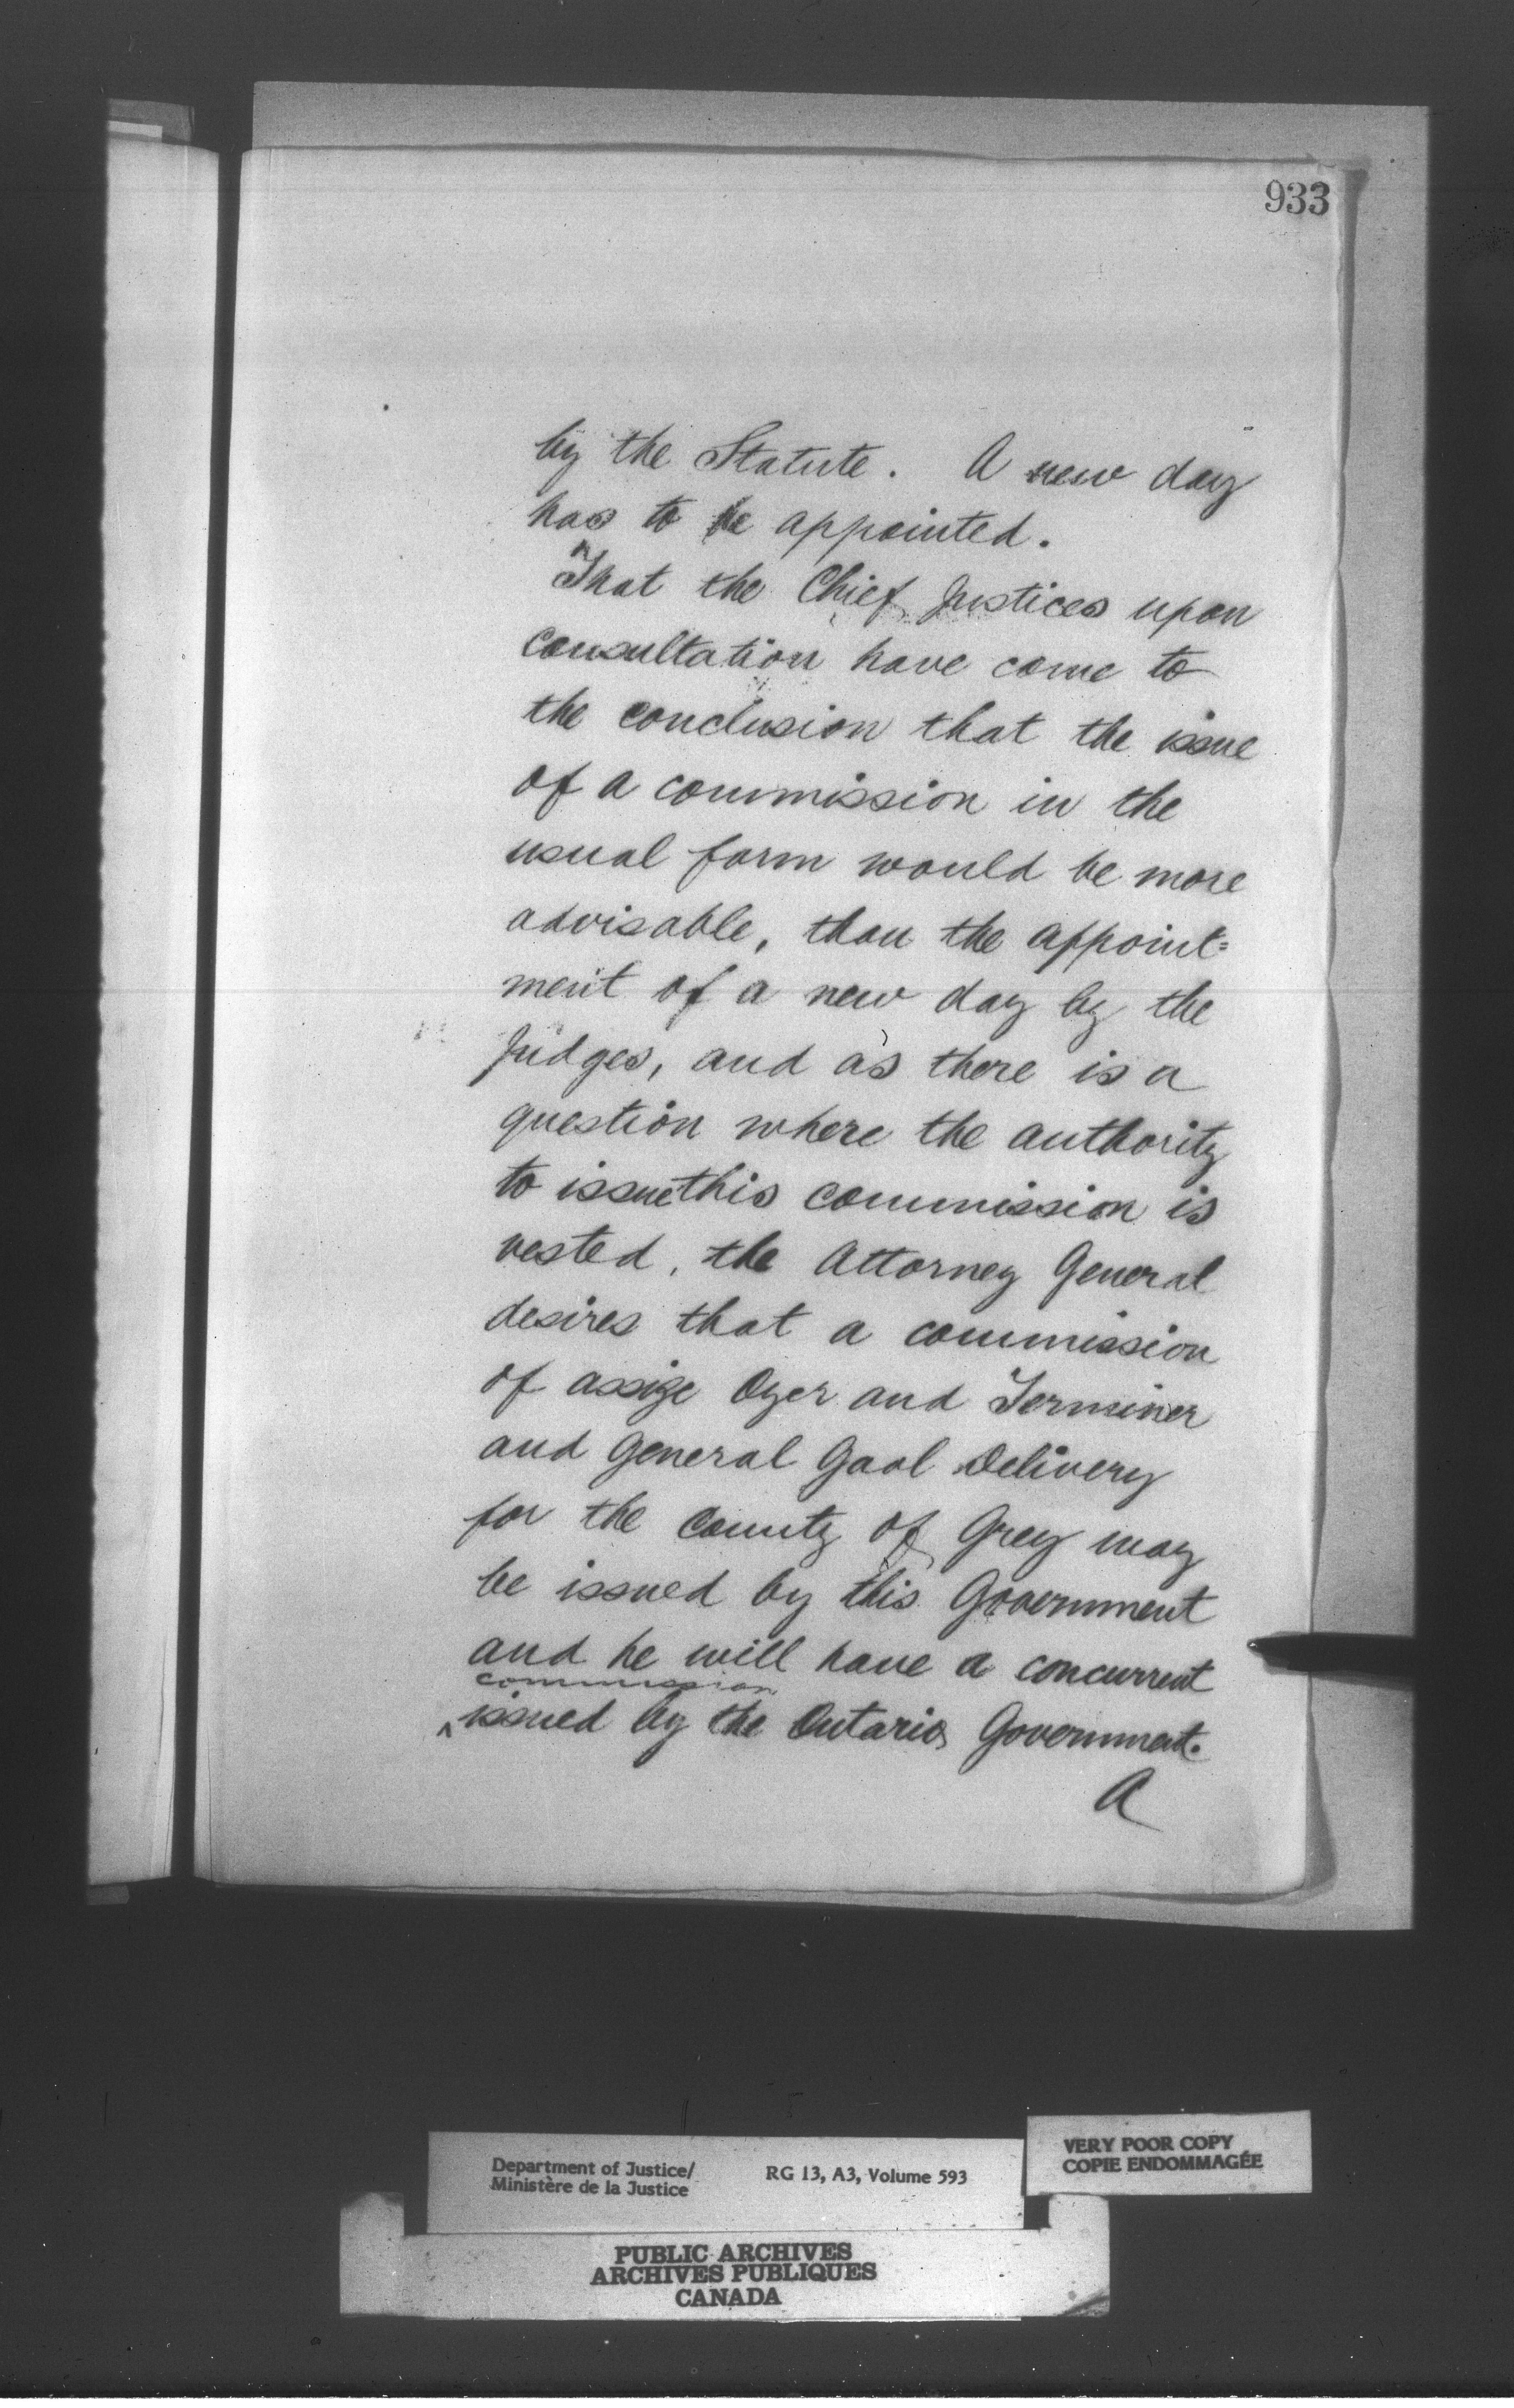 933
by the Statute. A new day
has to be appointed.
That the Chief Justices upon
consultation have come to
the conclusion that the issue
of a commission in the
usual form would be more
advisable, than the appoint=
ment of a new day by the
Judges, and as there is a
question where the authority
to issue this commission is
vested, the Attorney General
desires that a commission
of assize Oyer and Terminer
and General Gaol Delivery
for the County of Grey may
be issued by this Government
and he will have a concurrent
commission
^issued by the Ontario Government.
A
VERY POOR COPY
COPIE ENDOMMAGÉE
Department of Justice/ RG 13, A3, Volume 593
Ministère de la Justice
PUBLIC ARCHIVES
ARCHIVES PUBLIQUES
CANADA